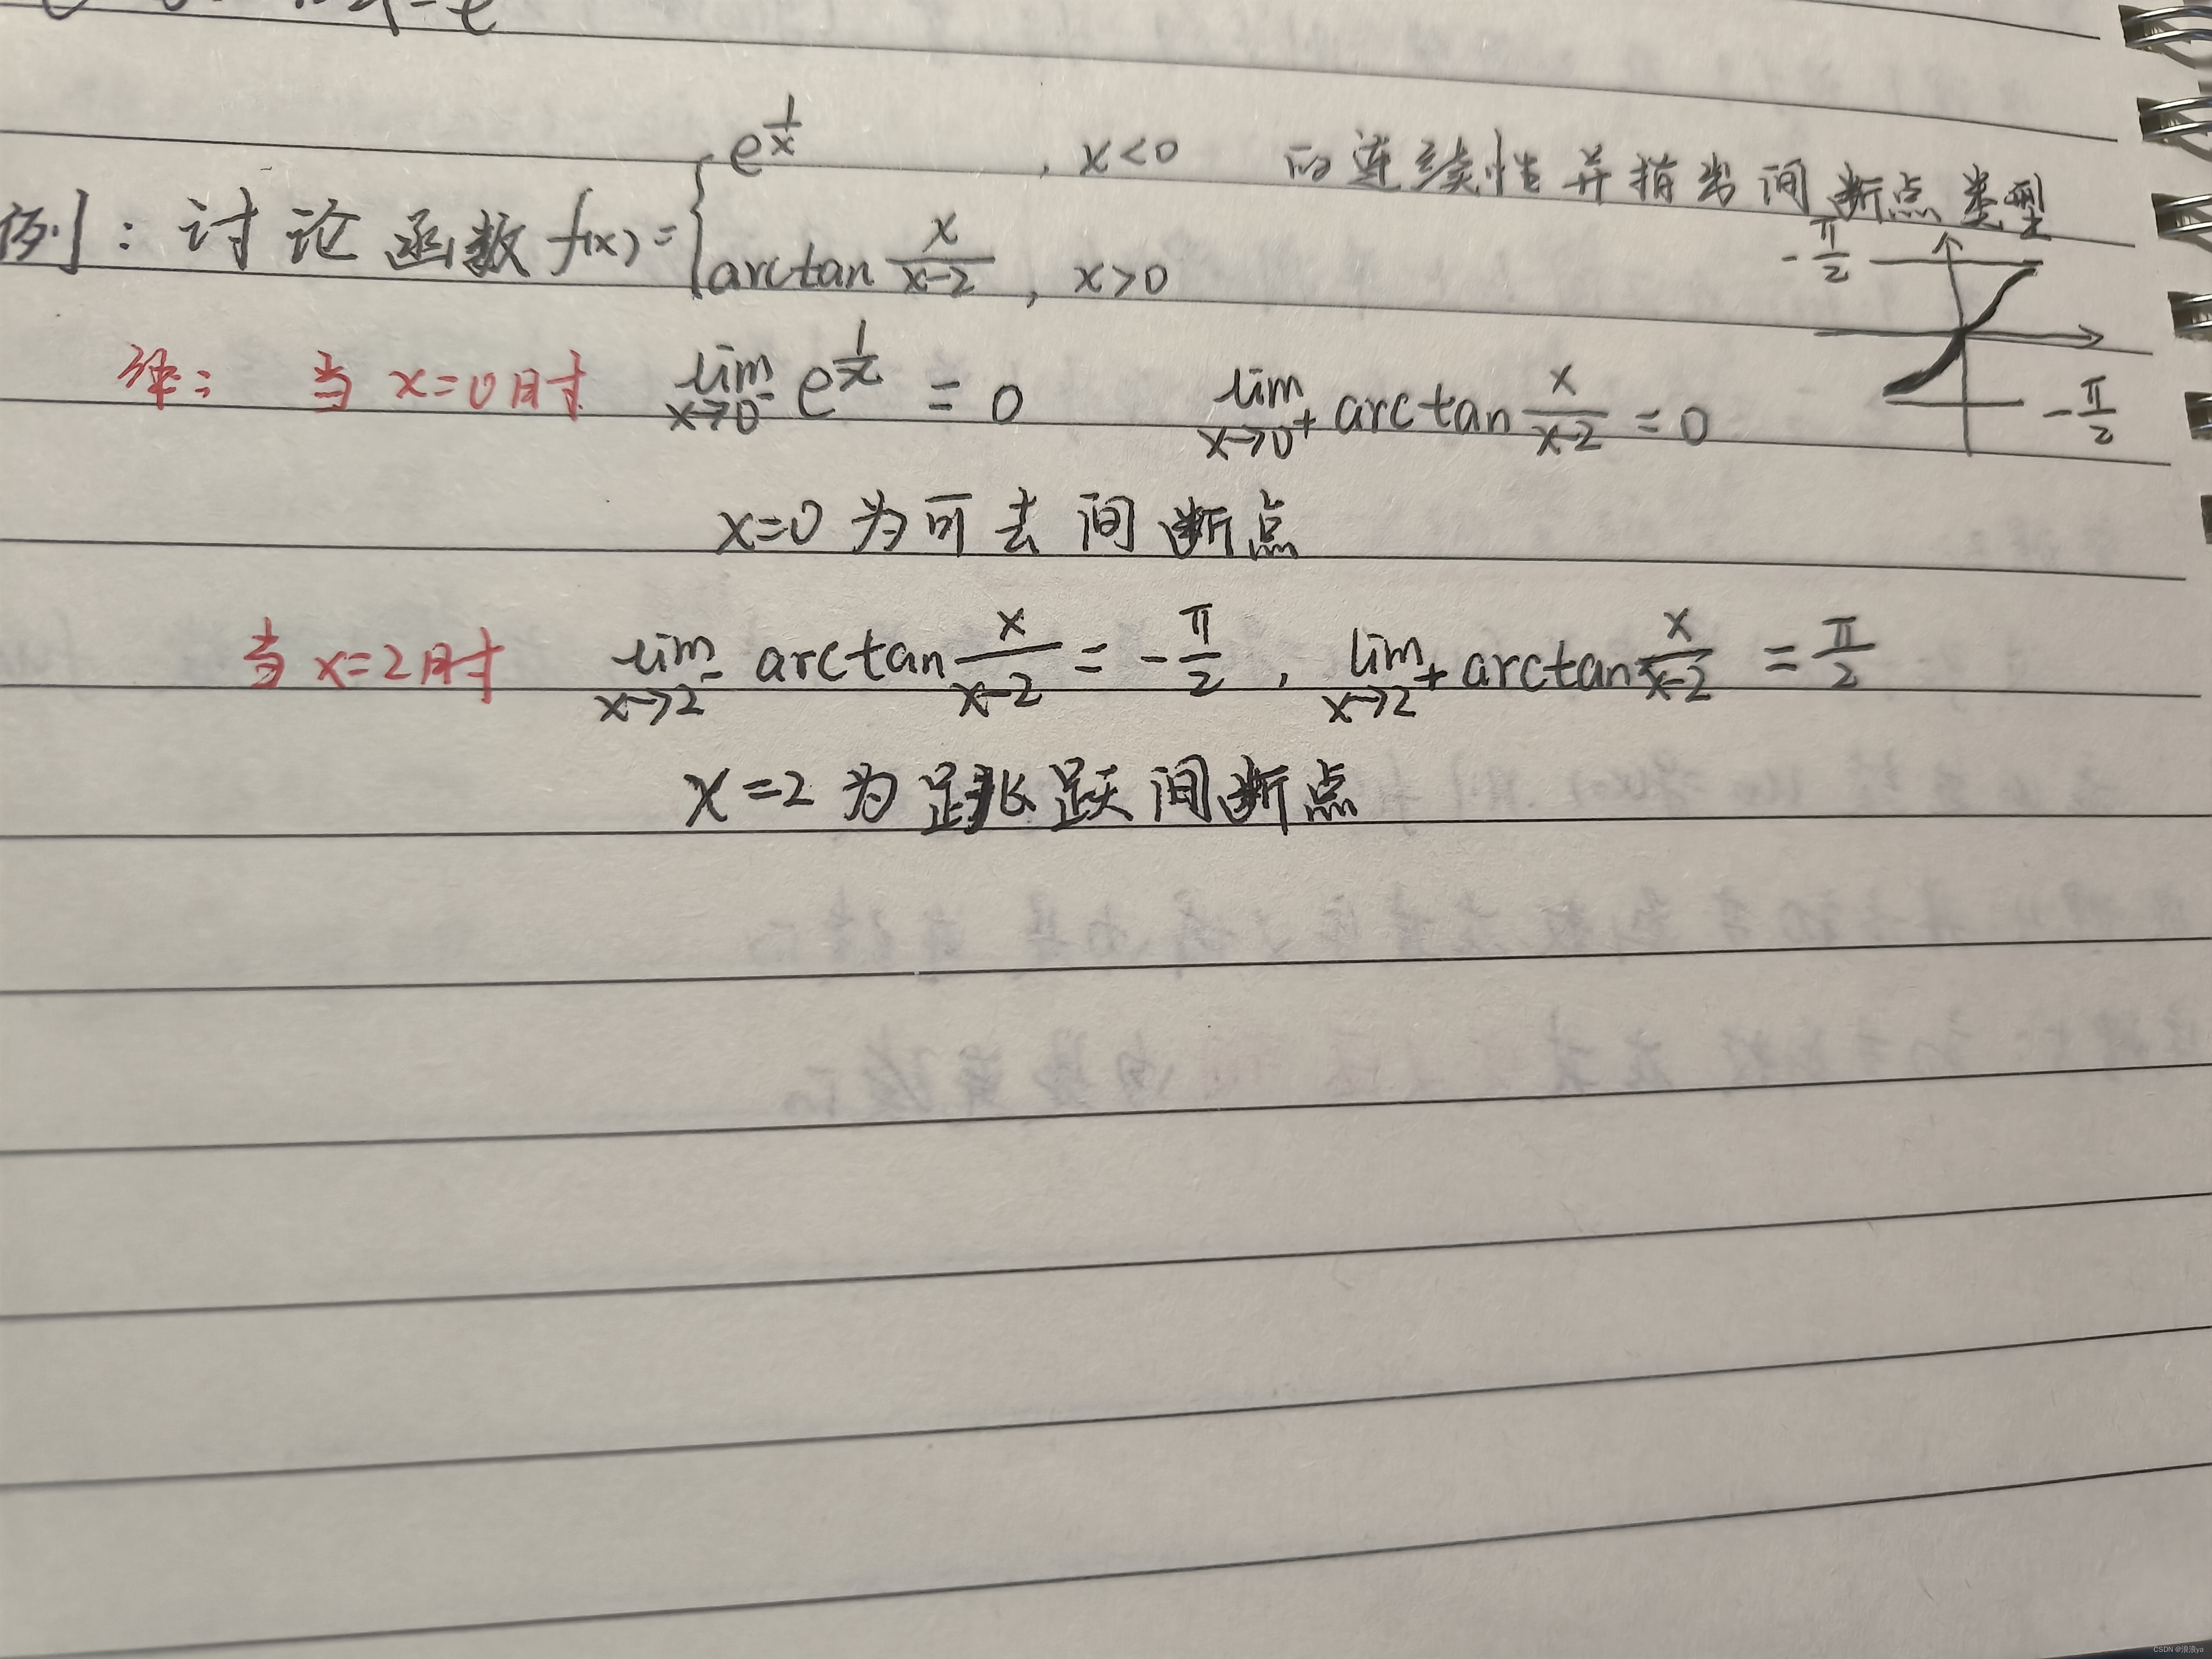 例: 讨论函数 f(x)= { e^{\frac{1}{x}} , x<0 的连续性并指出间断点类型
arctan \frac{x}{x-2} , x>0
-\frac{π}{2}
解: 当 x=0时 \lim_{x→0^-} e^{\frac{1}{x}} = 0 \lim_{x→0^+} arctan \frac{x}{x-2} = 0
-\frac{π}{2}
x=0 为可去间断点
当 x=2时 \lim_{x→2^-} arctan \frac{x}{x-2} = -\frac{π}{2} , \lim_{x→2^+} arctan \frac{x}{x-2} = \frac{π}{2}
x=2 为跳跃间断点
CSDN @浪浪ya